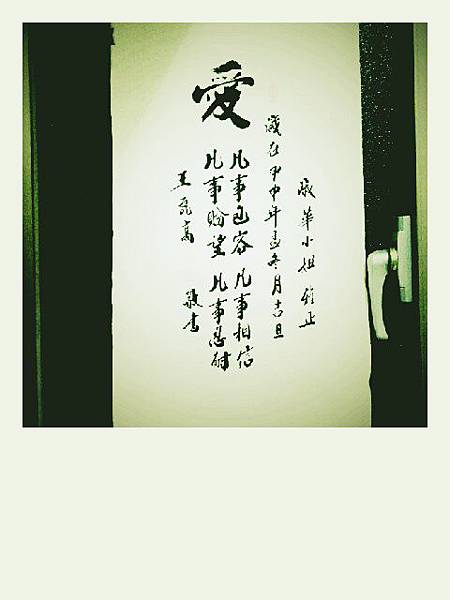 華小姐雅正
歲在甲申年孟冬月吉旦
愛
凡事包容 凡事相信
凡事盼望 凡事忍耐
王 高 敬書